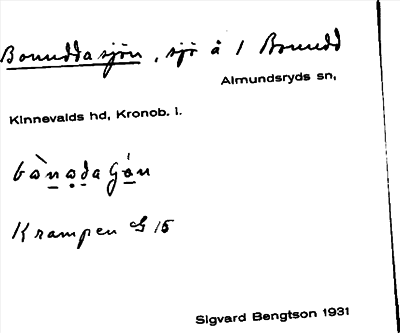 Bonuddasjön, sjö å 1 Bonudd
Almundsryds sn,
Kinnevalds hd, Kronob. l.
bò̱nạḏagó̱n
Krampen G 15
Sigvard Bengtson 1931